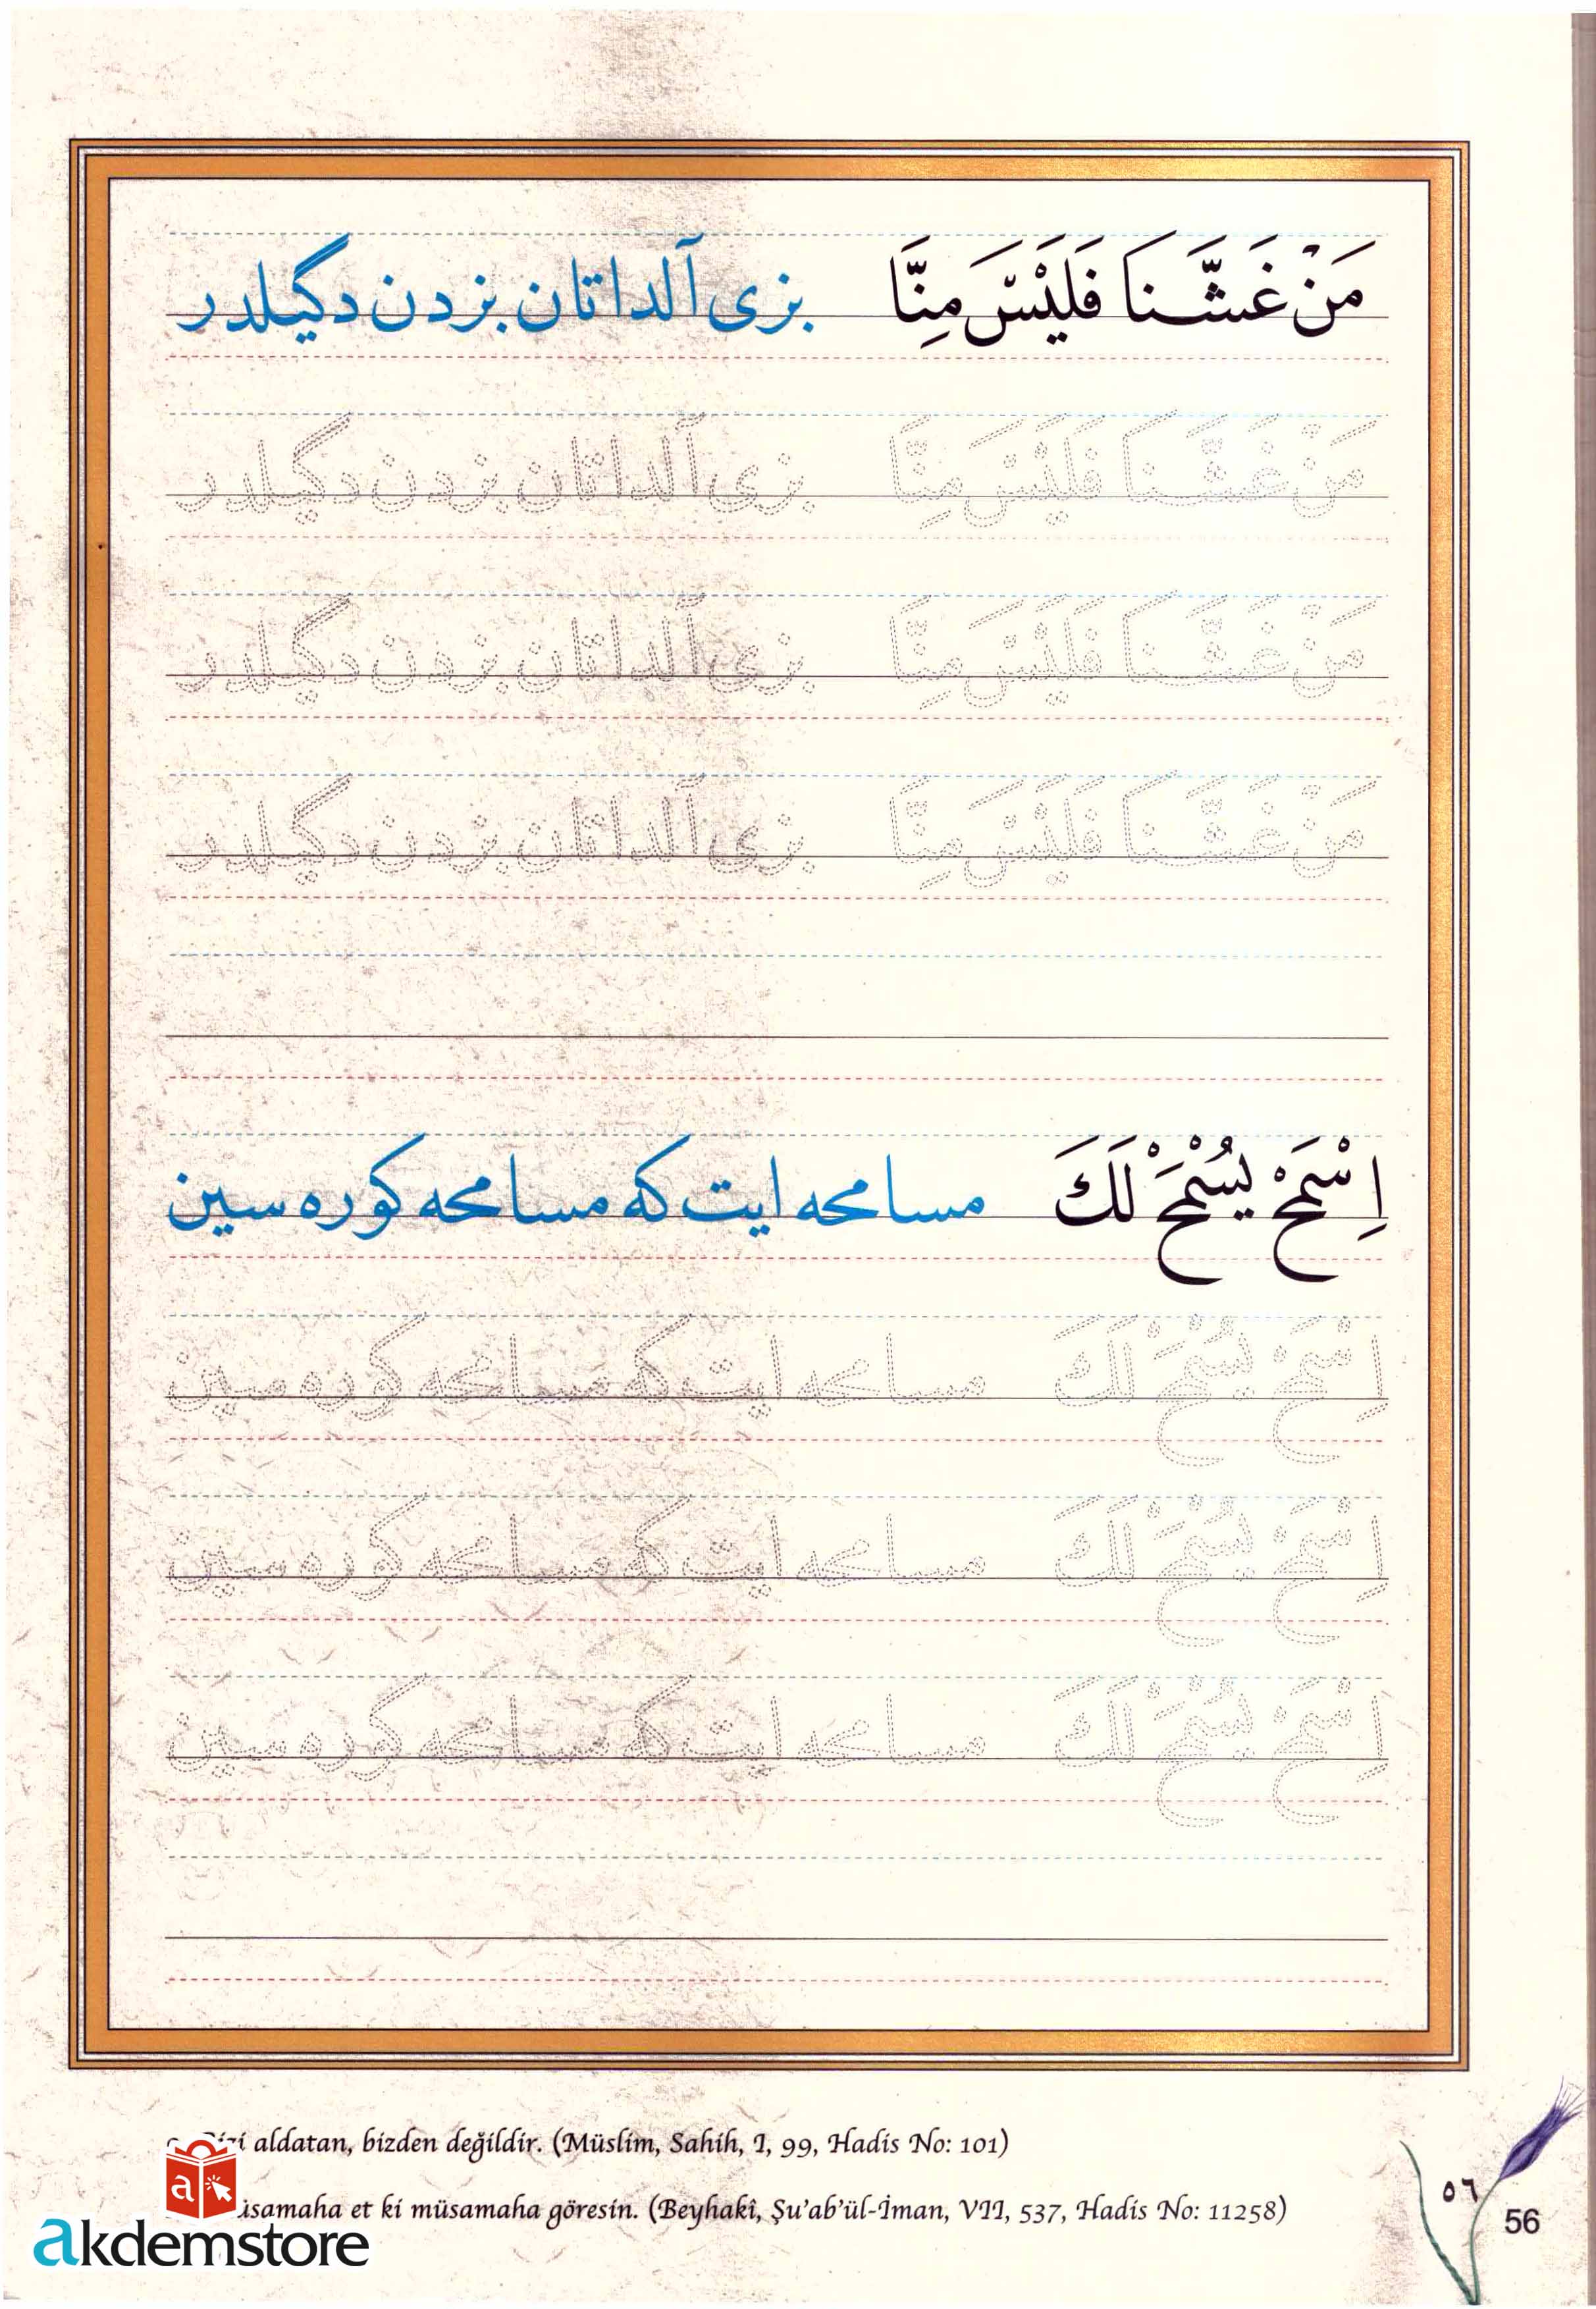 مَنْ غَشَّنَا فَلَيْسَ مِنَّا بزى آلداتان بزدن دگيلدر
مَنْ غَشَّنَا فَلَيْسَ مِنَّا بزى آلداتان بزدن دگيلدر
مَنْ غَشَّنَا فَلَيْسَ مِنَّا بزى آلداتان بزدن دگيلدر
مَنْ غَشَّنَا فَلَيْسَ مِنَّا بزى آلداتان بزدن دگيلدر
اِسْمَحْ يُسْمَحْ لَكَ مسامحه ايت كه مسامحه كوره سين
اِسْمَحْ يُسْمَحْ لَكَ مسامحه ايت كه مسامحه كوره سين
اِسْمَحْ يُسْمَحْ لَكَ مسامحه ايت كه مسامحه كوره سين
اِسْمَحْ يُسْمَحْ لَكَ مسامحه ايت كه مسامحه كوره سين
aldatan, bizden değildir. (Müslim, Sahih, I, 99, Hadis No: 101)
et ki müsamaha göresin. (Beyhakî, Şu'ab'ül-İman, VII, 537, Hadis No: 11258)
٥٦
56
a
akdemstore